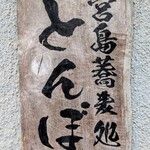 宮島蕎麦処
とんぼ